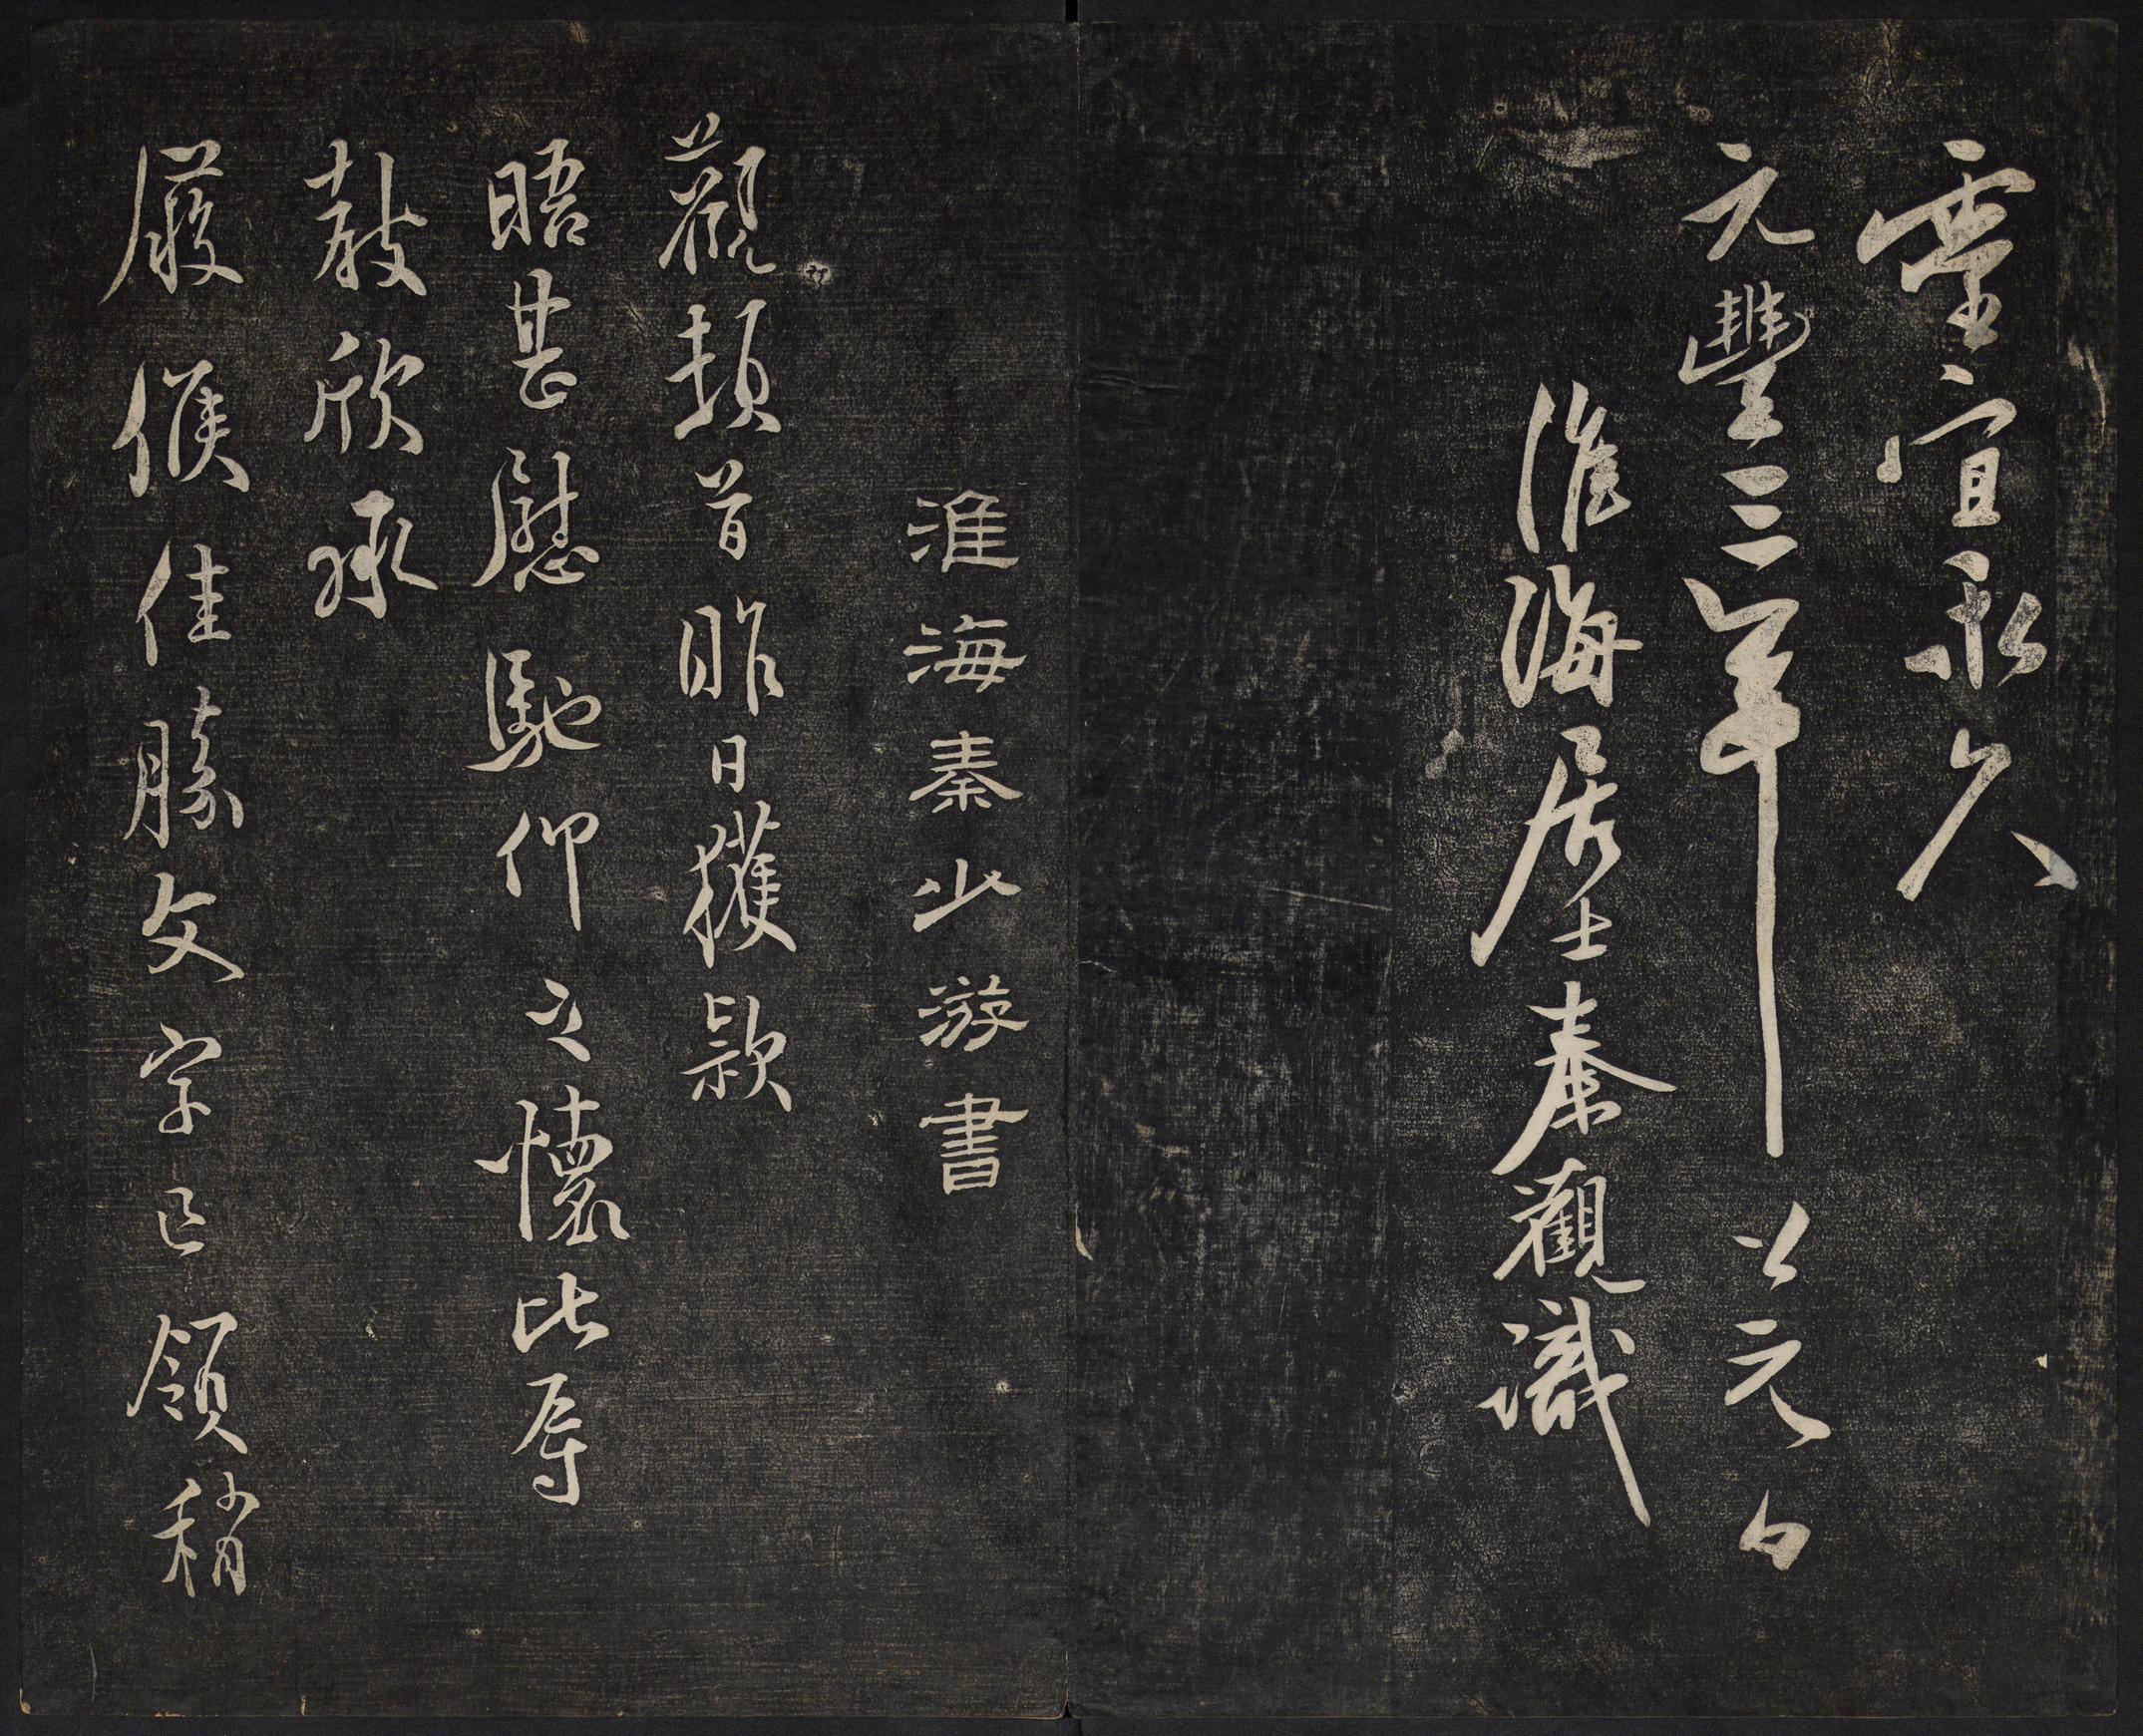 靈宜永久
元豐三年上元日
淮海居士秦觀識
淮海秦少游書
觀頓首昨日獲款
晤甚慰馳仰之懷比辱
教欣承
履候佳勝文字已領稍